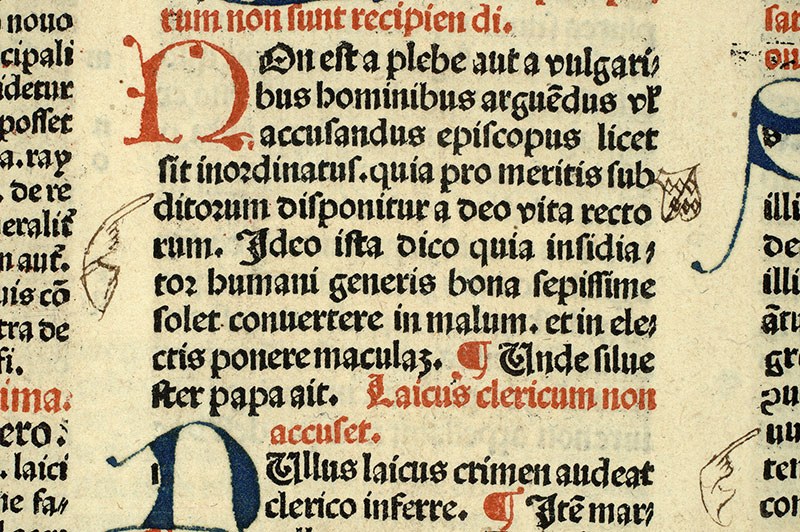 nouo
cipali
idetur
posset
a. ray
. de re
neralit̃
n aut̃.
uis cō
tra de
fi.
ima.
ero.
. laici
ne fa⸗
rum non sunt recipien di.
NOn est a plebe aut a vulgari⸗
bus hominibus arguēdus vł
accusandus episcopus licet
sit inordinatus. quia pro meritis sub
ditorum disponitur a deo vita recto
rum. Ideo ista dico quia insidia⸗
tor humani generis bona sepissime
solet conuertere in malum. et in ele⸗
ctis ponere maculaz. ¶ Unde silue
ster papa ait. Laicus clericum non
accuset.
NUllus laicus crimen audeat
clerico inferre. ¶ Itē mar⸗
sat
illi
de
illi
āt
gr
ten
con